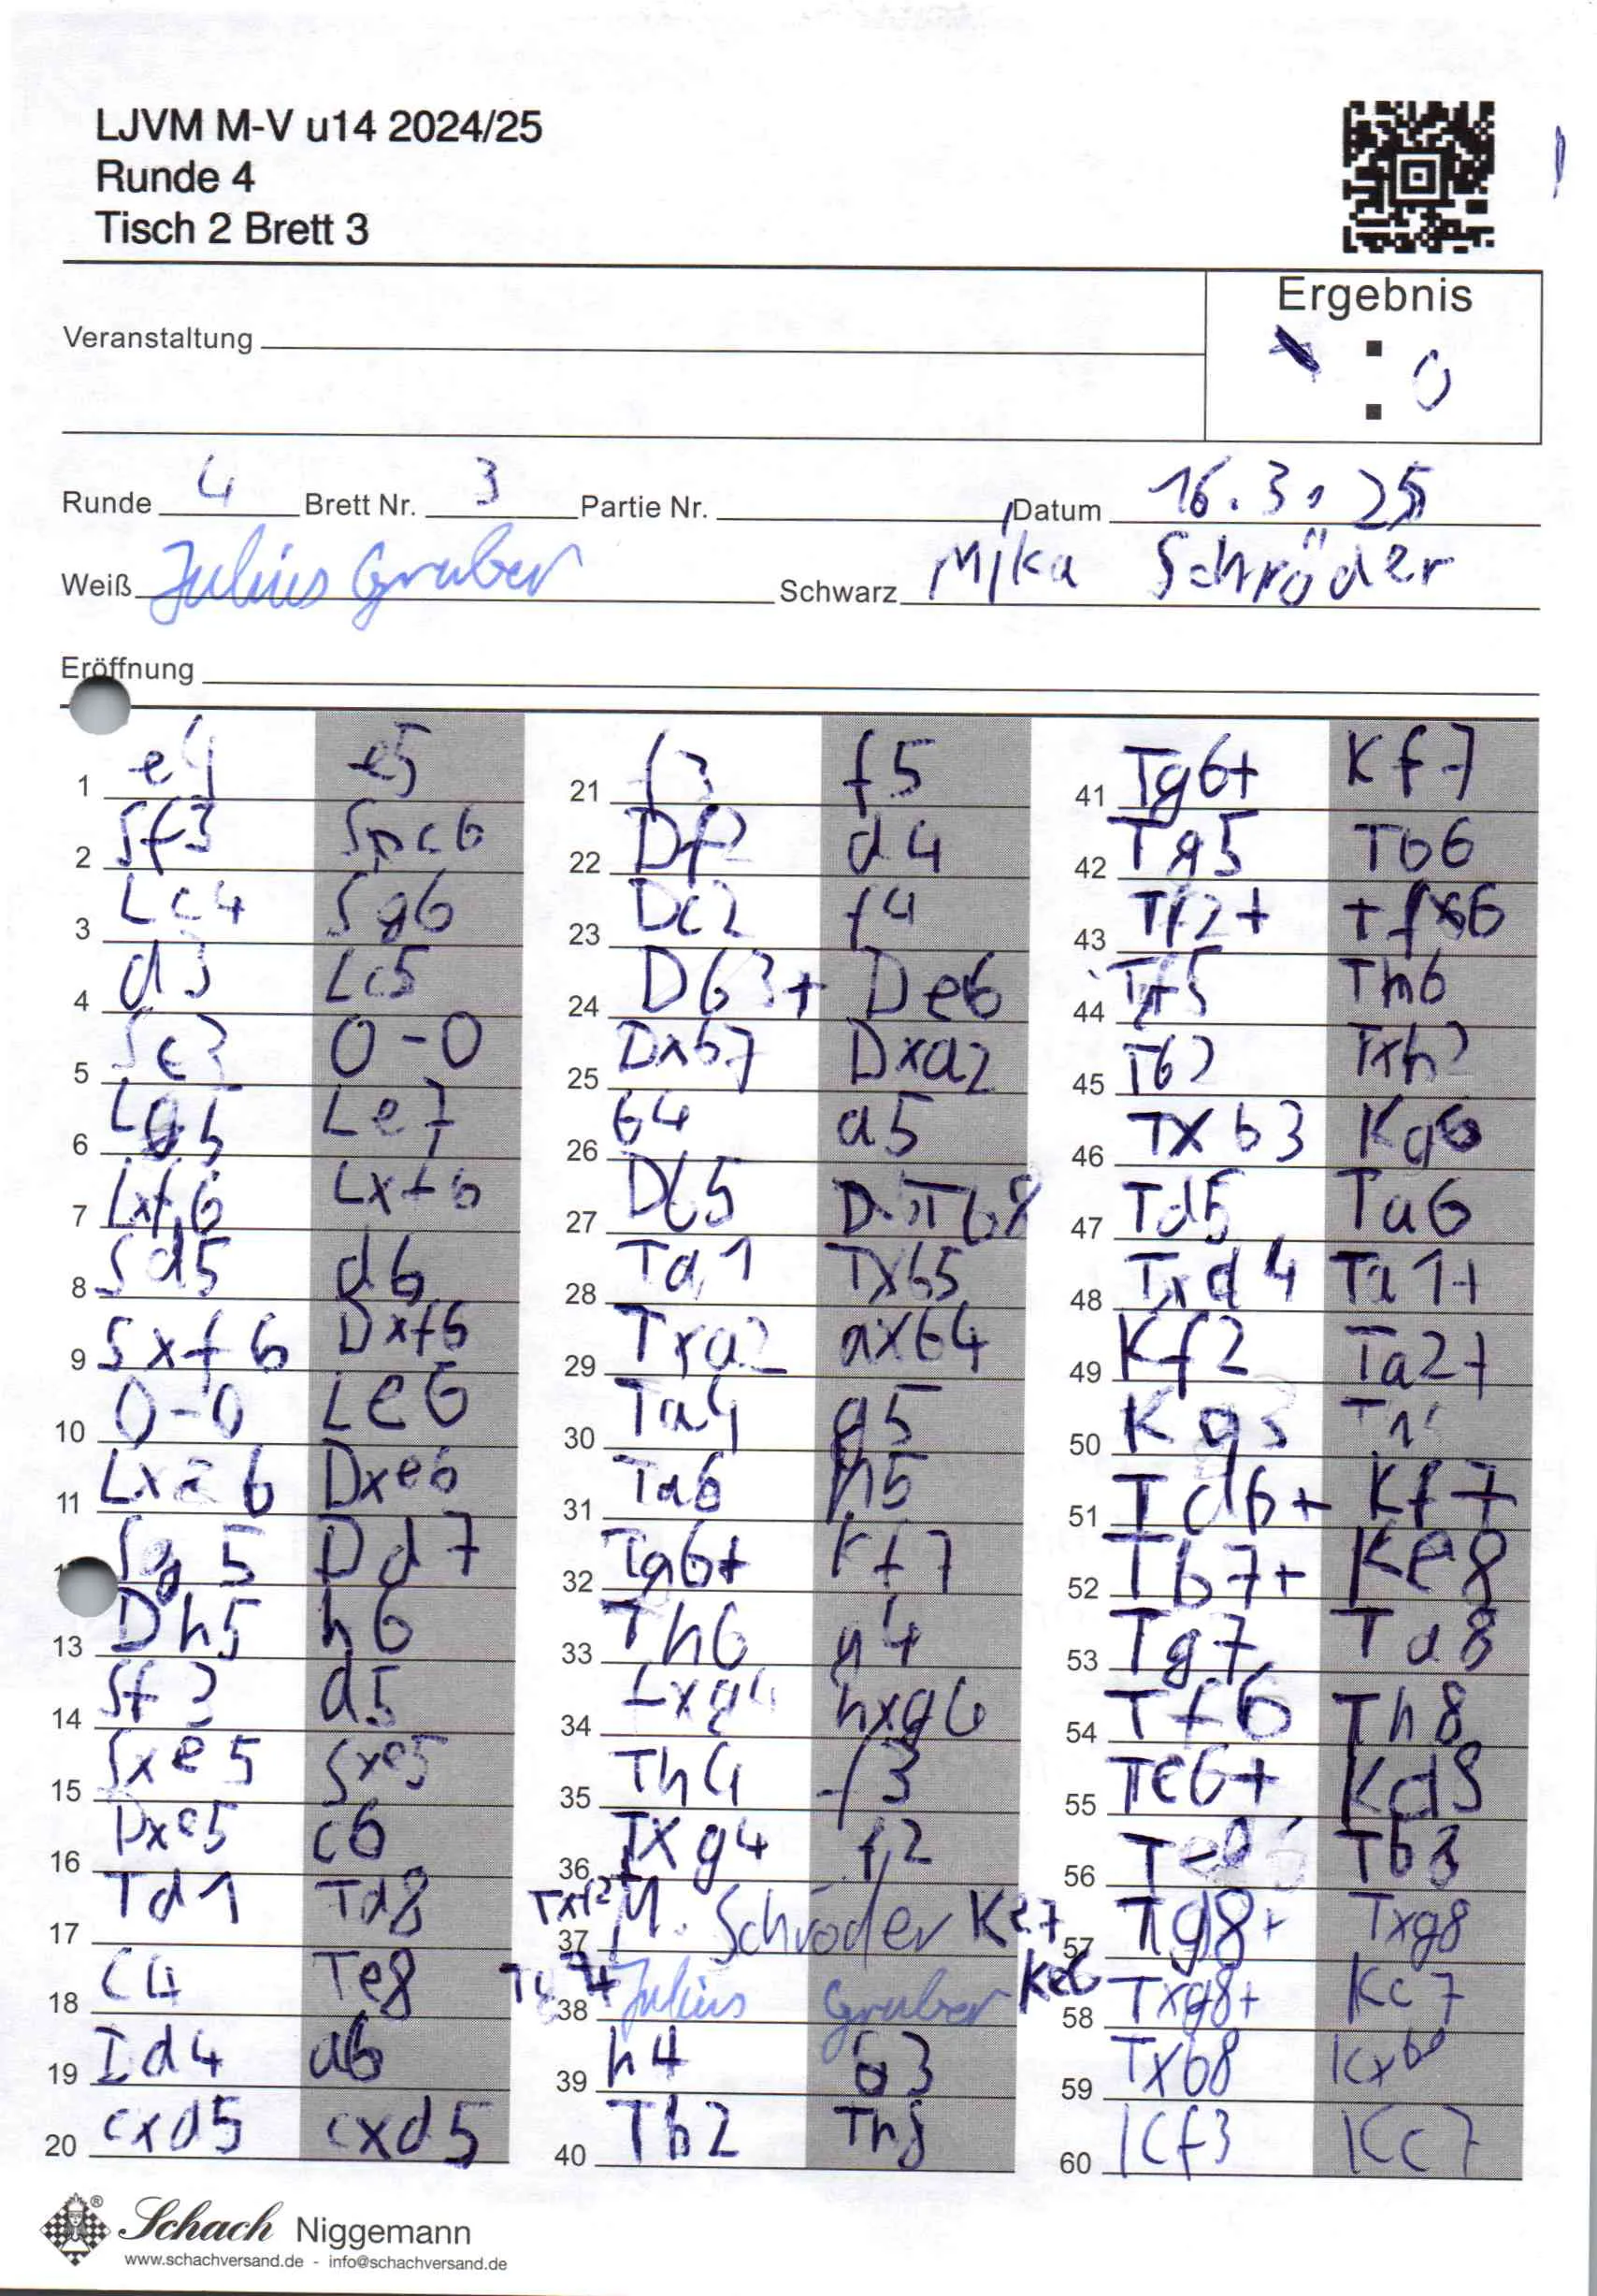 LJVM M-V u14 2024/25
Runde 4
Tisch 2 Brett 3
Ergebnis
: 0
Veranstaltung
Runde 4 Brett Nr. 3 Partie Nr. Datum 16.3.25
Weiß Julius Gruber Schwarz Mika Schröder
Eröffnung
1 e4 e5
2 Sf3 Spc6
3 Lc4 Sg6
4 d3 Lc5
5 Sc3 0-0
6 Lg5 Le7
7 Lxf6 Lxf6
8 Sd5 d6
9 Sxf6 Dxf6
10 0-0 Le6
11 Lxe6 Dxe6
Sg5 Dd7
13 Dh5 h6
14 Sf3 d5
15 Sxe5 Sxe5
16 Dxe5 c6
17 Td1 Td8
18 c4 Te8
19 Td4 a6
20 cxd5 cxd5
21 f3 f5
22 Df2 d4
23 Dc2 f4
24 Db3+ De6
25 Dxb7 Dxa2
26 b4 a5
27 Db5 Tb8
28 Ta1 Txb5
29 Txa2 axb4
30 Ta4 g5
31 Ta6 h5
32 Tg6+ Kf7
33 Th6 g4
34 fxg4 hxg6
35 Th4 f3
36 Txg4 f2
37 Txf2+ M. Schröder Ke7
38 Julius Gruber Ke6
39 h4 b3
40 Tb2 Th8
41 Tg6+ Kf7
42 Tg5 Tb6
43 Tf2+ Tfx6
44 Tf5 Th6
45 Tb2 Txh2
46 Txb3 Kg6
47 Td5 Ta6
48 Txd4 Ta1+
49 Kf2 Ta2+
50 Kg3
51 Td6+ Kf7
52 Tb7+ Ke8
53 Tg7 Ta8
54 Tf6 Th8
55 Te6+ Kd8
56 Tb3
57 Tg8+ Txg8
58 Txg8+ Kc7
59 Txb8 Kxb8
60 Kf3 Kc7
Schach Niggemann
www.schachversand.de - info@schachversand.de